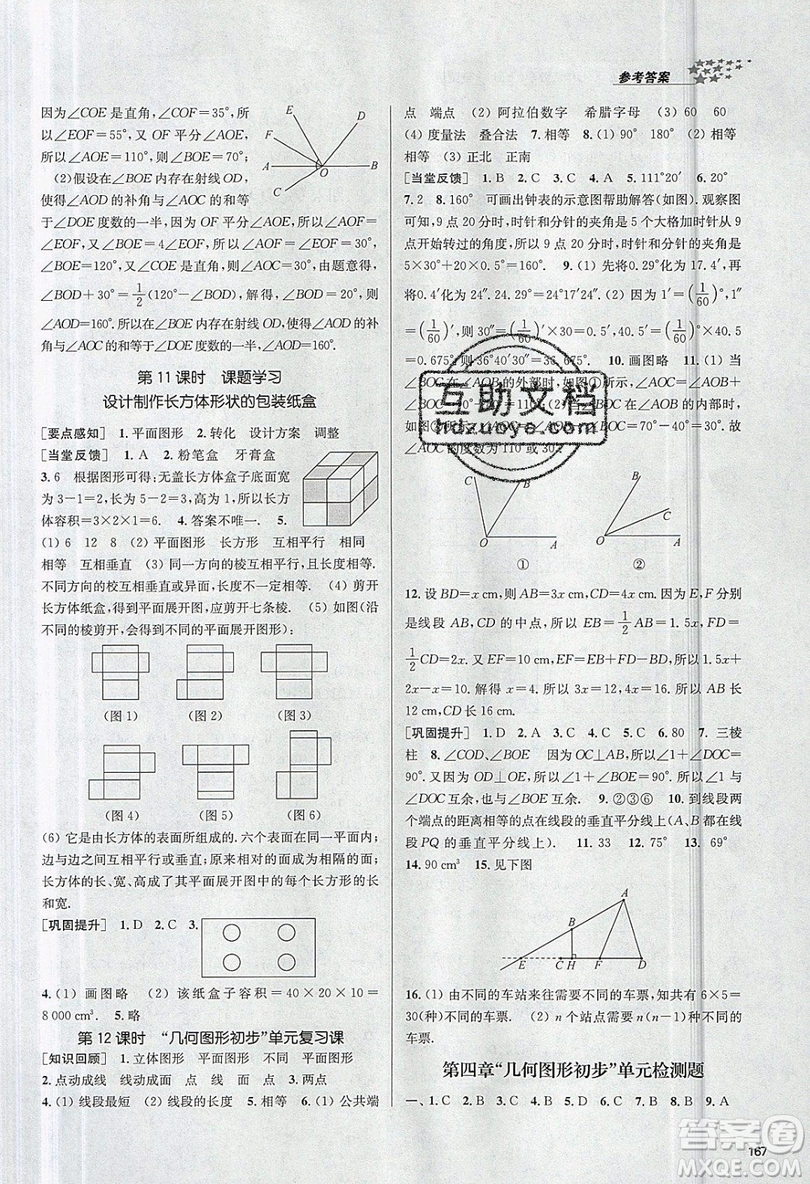 参考答案
因为∠COE是直角,∠COF=35°,所以
∠EOF=55°,又OF平分∠AOE,
所以∠AOE=110°,所以∠BOE=70°;
(2)假设∠BOE内存在射线OD,
使得∠AOD的补角与∠AOC的和等
于∠DOE度数的一半,因为∠BOE=
120°,又OF平分∠AOE,所以∠AOE=60°,因为
∠BOE=120°,又∠COE=90°,所以∠AOC=30°.
所以∠DOE=120°-∠BOD,由题意得,
∠BOD+30°=1/2(120°-∠BOD),解得,∠BOD=20°,
∠AOD=160°.所以∠BOE内存在射线OD,使得∠AOD的补
角与∠AOC的和等于∠DOE度数的一半,∠AOD=160°.
E
D
F
A
O
B
C
第11课时 课题学习
设计制作长方体形状的包装纸盒
[要点感知] 1.平面图形 2.转化 设计方案 调整
[当堂反馈] 1.A 2.粉笔盒 牙膏盒
3.6 根据图形可得:无盖长方体盒子底面宽
为3-1=2,长为5-2=3,高为1,所以长
方体容积=3×2×1=6. 4.答案不唯一. 5.
(1)6 12 8 (2)平面图形 长方形 互相平行 相同
相等 互相垂直 (3)同一方向的棱互相平行,且长度相等.
不同方向的棱互相垂直或异面,长度不等. (4)剪开
长方体纸盒,得到平面展开图形,应剪开七条棱. (5)如图(沿
不同的棱剪开,会得到不同的展开图形):
(图1)
(图2)
(图3)
(图4)
(图5)
(图6)
(6)它是由长方体的表面所组成的.六个表面在同一平面;
边与边之间互相平行或垂直;原来相对的面成为相隔的面;
长方体的长、宽、高成为平面展开图中每个长方形的长
和宽.
[巩固提升] 1.D 2.C 3.
4.(1)画图略 (2)该纸盒子容积=40×20×10=
8 000 cm³. 5.略
第12课时 “几何图形初步”单元复习课
[知识回顾] 1.立体图形 平面图形 不同 平面图形
2.点动成线 线动成面 面动成体 3.两 一
4.(1)线段最短 (2)长度 5.相等 6.(1)公共端
点 端点 (2)阿拉伯数字 希腊字母 (3)60 60
(4)度量法 叠合法 7.相等 8.(1)90° 180° (2)相等
相等 (3)正北 正南
[当堂反馈] 1.B 2.C 3.A 4.A 5.111°20′ 6.20°
7.2 8.160° 可画出钟表的示意图帮助解答(如图).观察图
可知,9点20分时,时针和分针的夹角是5个大格加时针从9
点开始转过的角度,所以9点20分时,时针和分针的夹角是
5×30°+20×0.5°=160°. 9.(1)先将0.29°化为17.4′,再
将0.4′化为24″.24.29°=24°17′24″.(2)因为1″=
(1/60)′,所以30″=(1/60)′×30=0.5′,40.5′=(1/60)°×40.5=
0.675°,所以36°40′30″=36.675°. 10.画图略 11.(1)当
∠BOC在∠AOC的外部时,如图①所示,∠AOB=∠AOC+
∠BOC=
的内部时,
如图②
所以∠AOC的度数为110°或30°.
C
B
O
A
①
B
C
O
②
12.设BD=x cm,则AB=3x cm,CD=4x cm.因为E,F分别
是线段AB,CD的中点,所以EB=1/2AB=1.5x cm,FD=
1/2CD=2x.因为EF=10 cm,EF=EB+FD-BD,所以1.5x+
2x-x=10.解得x=4.所以3x=12,4x=16.所以AB长
12 cm,CD长16 cm.
[巩固提升] 1.D 2.A 3.C 4.C 5.C 6.80 7.三棱
柱 8.∠COD、∠BOE 因为OC⊥AB,所以∠1+∠COD=
90°.又因为OD⊥OE,所以∠1与
∠DOC互余,∠BOE与∠1互余. 9.②③⑥ 10.到线段两
个端点的距离相等的点在线段的垂直平分线上(或点M,N都在
线段PQ的垂直平分线上). 11.33 12.75° 13.69°
14.90 cm³ 15.见下图
A
B
E
C
H
F
D
16.(1)由不同的车站来往需要不同的车票,共有6×5=
30(种)不同的车票. (2)n个车站共有n(n-1)种不同的
车票.
第四章“几何图形初步”单元检测题
一、1.C 2.C 3.D 4.C 5.B 6.D 7.C 8.B 9.A
互助文档
hdzuoye.com
答案圈
MXQE.COM
167